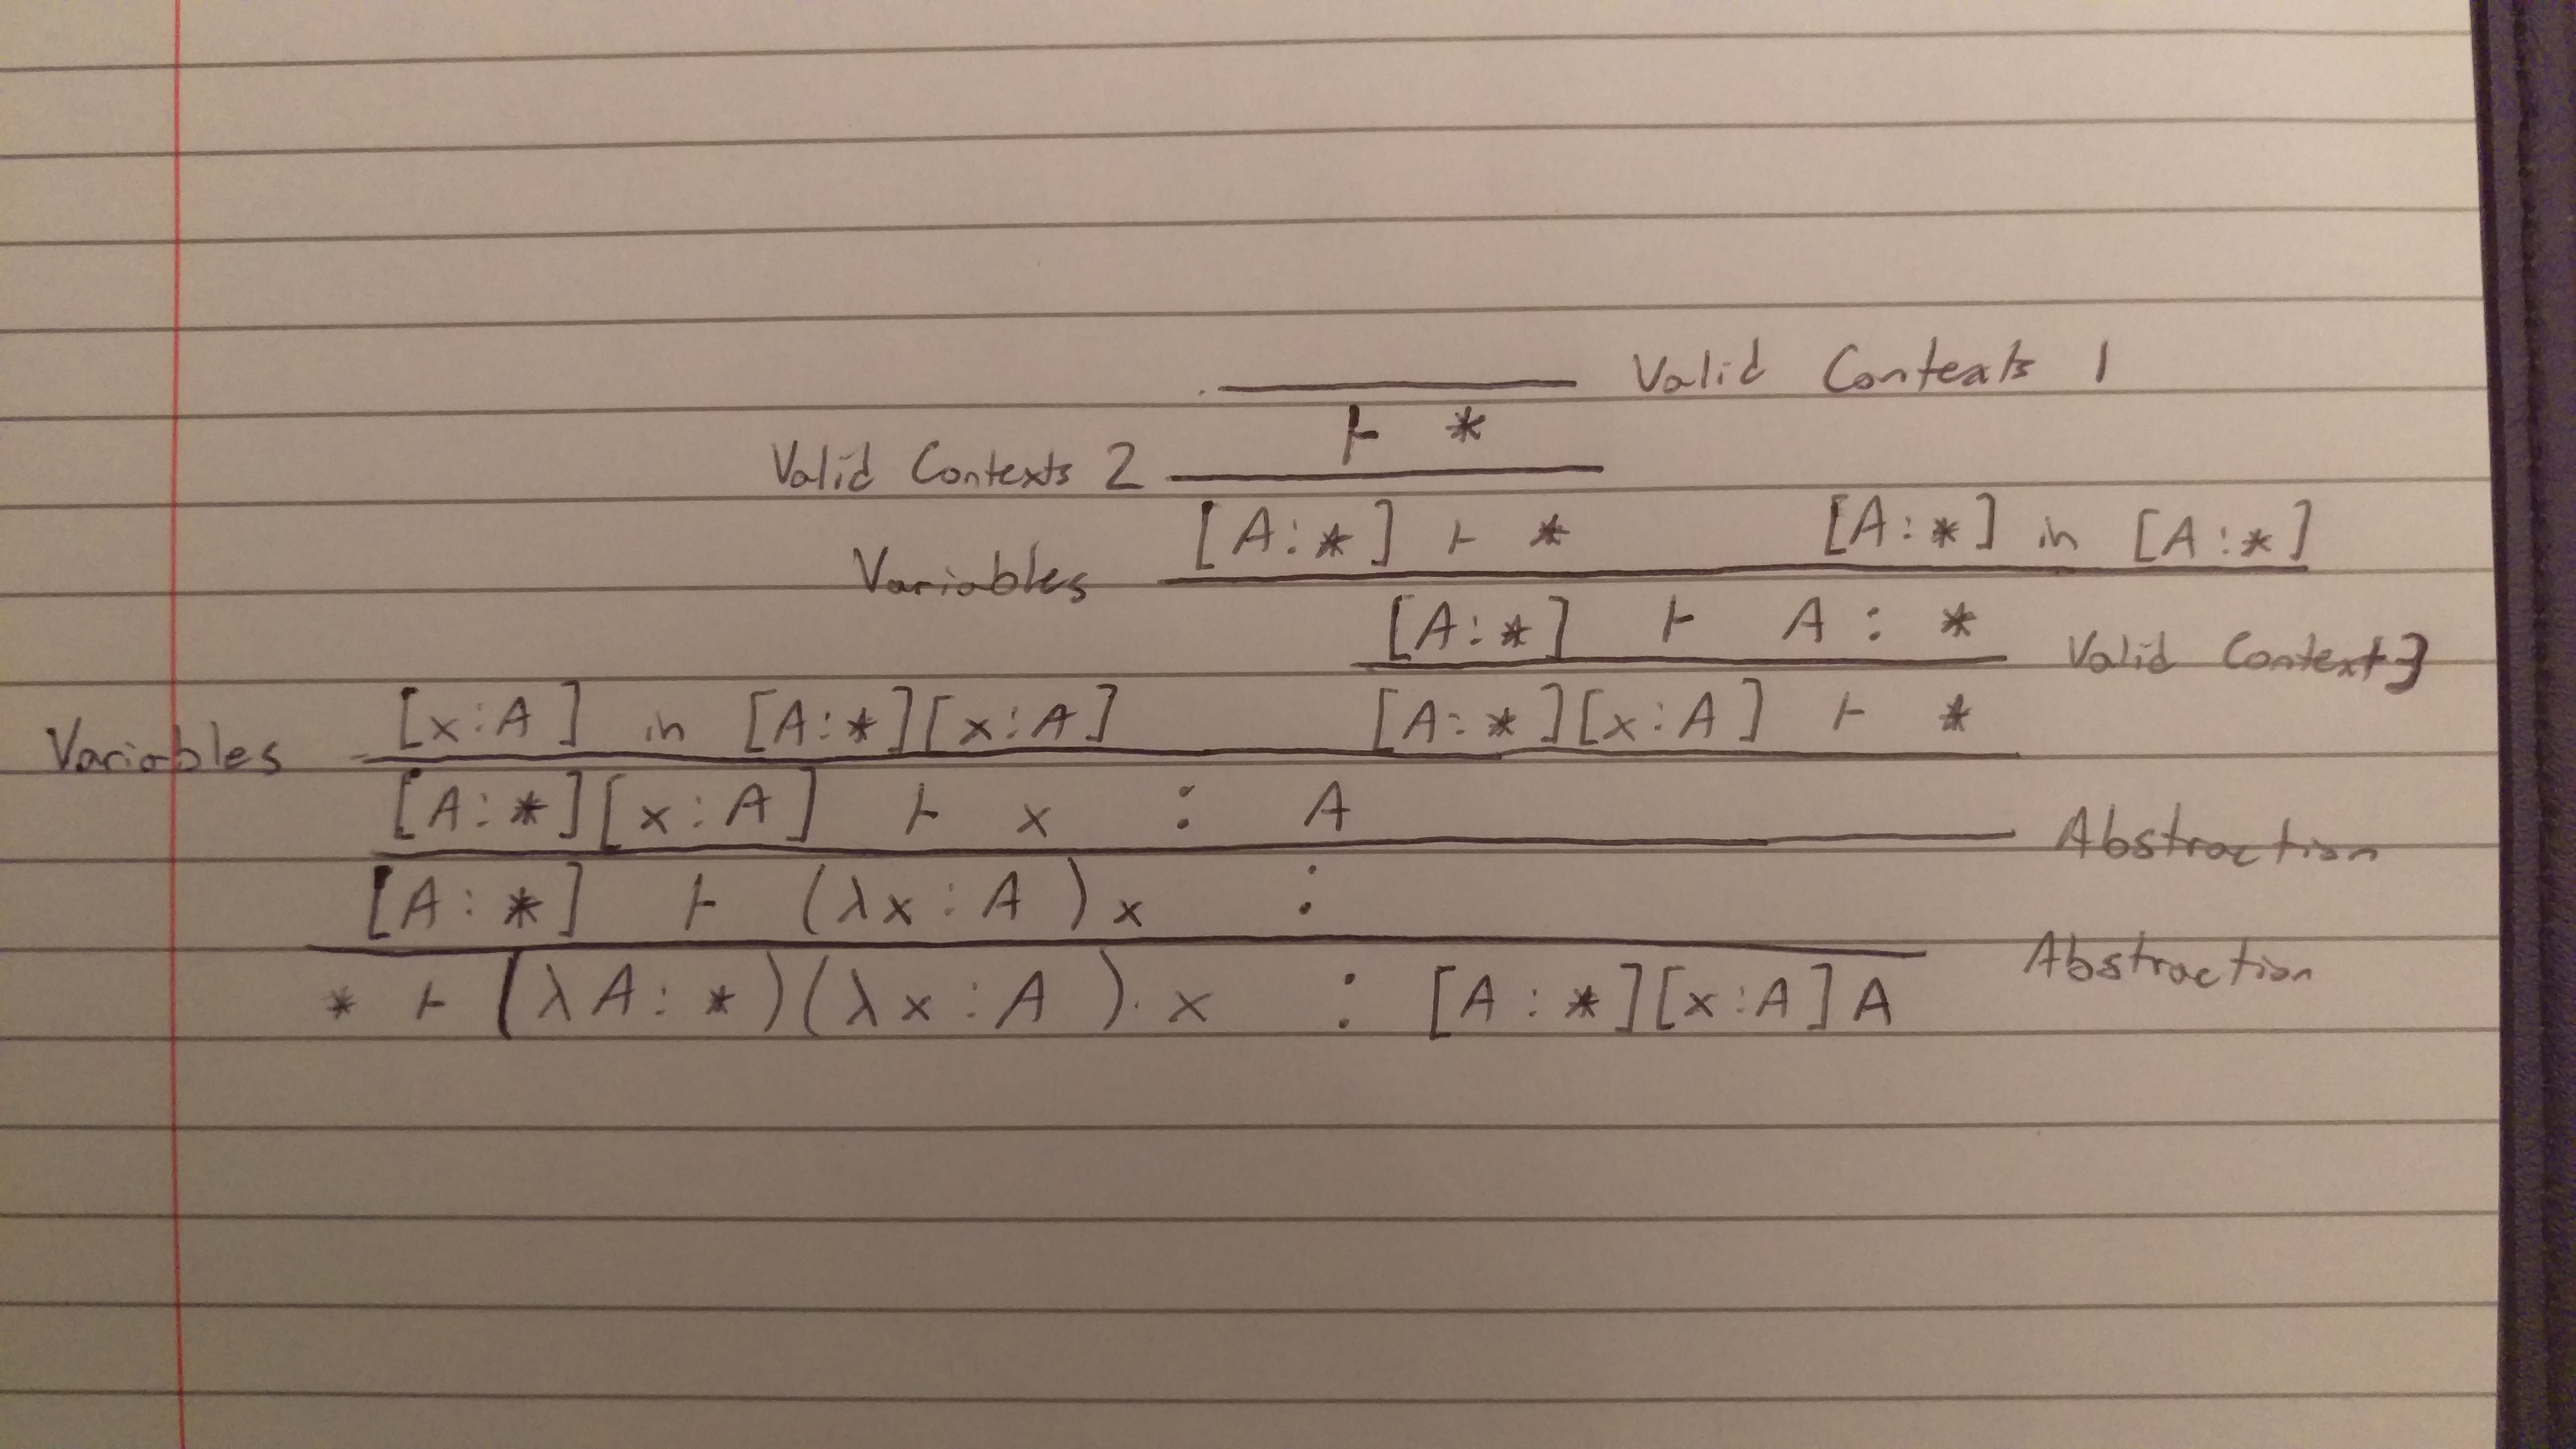 Valid Contexts 1
⊢ *
Valid Contexts 2
[A:*] ⊢ * [A:*] in [A:*]
Variables
[A:*] ⊢ A : *
Valid Context 3
[x:A] in [A:*][x:A] [A:*][x:A] ⊢ *
Variables
[A:*][x:A] ⊢ x : A
Abstraction
[A:*] ⊢ (λx:A)x :
Abstraction
* ⊢ (λA:*)(λx:A).x : [A:*][x:A]A